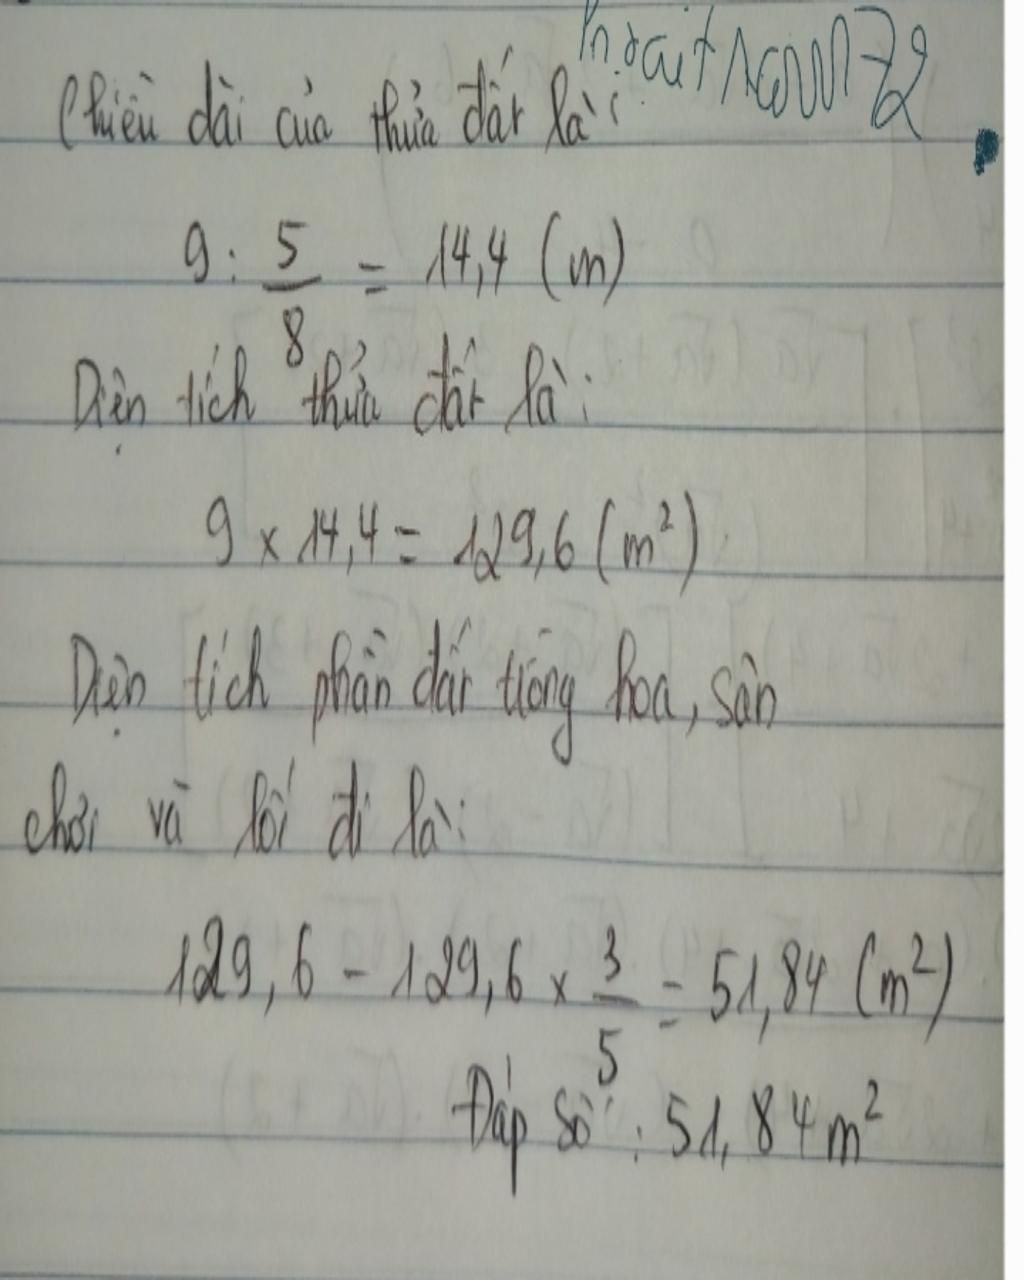 Chiều dài của thửa đất là:
9 : 5/8 = 14,4 (m)
Diện tích thửa đất là:
9 x 14,4 = 129,6 (m²)
Diện tích phần đất trồng hoa, sân
chơi và lối đi là:
129,6 - 129,6 x 3/5 = 51,84 (m²)
Đáp số : 51,84 m²